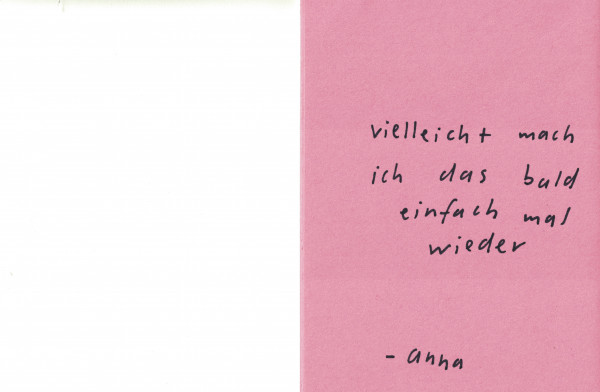 vielleicht mach
ich das bald
einfach mal
wieder
- anna